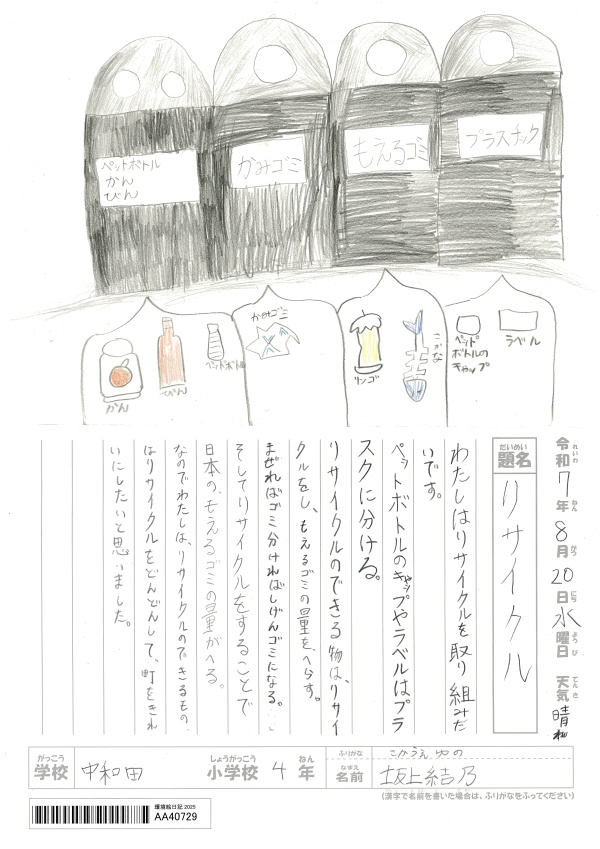 ペットボトル
かん
びん
かみゴミ
もえるゴミ
プラスチック
かん
びん
ペットボトル
かみゴミ
リンゴ
こざかな
ペット
ボトルの
キャップ
ラベル
令和7年8月20日水曜日 天気 晴れ
れいわ ねん がつ にち ようび てんき
だいめい
題名 リサイクル
わたしはリサイクルを取り組みた
いです。
ペットボトルのキャップやラベルはプラ
スクに分ける。
リサイクルのできる物はリサイ
クルをし、もえるゴミの量を、へらす。
まぜればゴミ分ければしげんゴミになる。
そしてリサイクルをすることで
日本の、もえるゴミの量がへる。
なのでわたしは、リサイクルのできるもの
はリサイクルをどんどんして、町をきれ
いにしたいと思いました。
がっこう しょうがっこう ねん
学校 中和田 小学校 4年
ふりがな さかうえ ゆの
なまえ
名前 坂上結乃
(漢字で名前を書いた場合は、ふりがなをふってください)
環境絵日記2025
AA40729